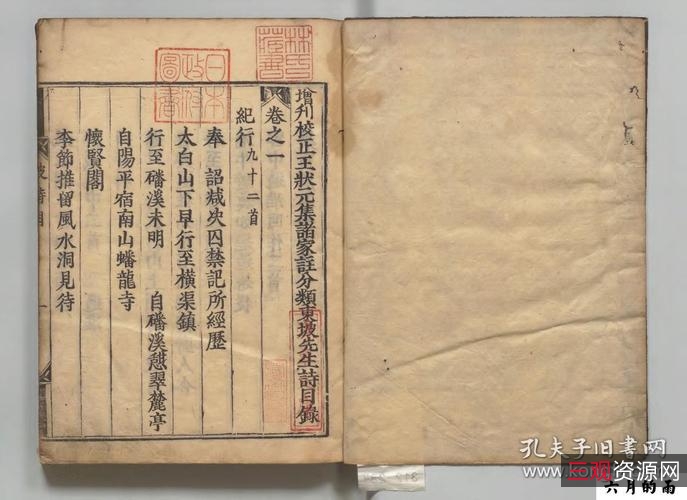 增刋校正王狀元集諸家註分類東坡先生詩目錄
卷之一
紀行九十二首
奉詔减决囚禁記所經歷
太白山下早行至橫渠鎮
行至磻溪未明 自磻溪憇翠麓亭
自陽平宿南山蟠龍寺
懷賢閣
李節推留風水洞見待
坡詩目
一
日本
政府
圖書
孔夫子旧书网
三观资源网
六月的雨